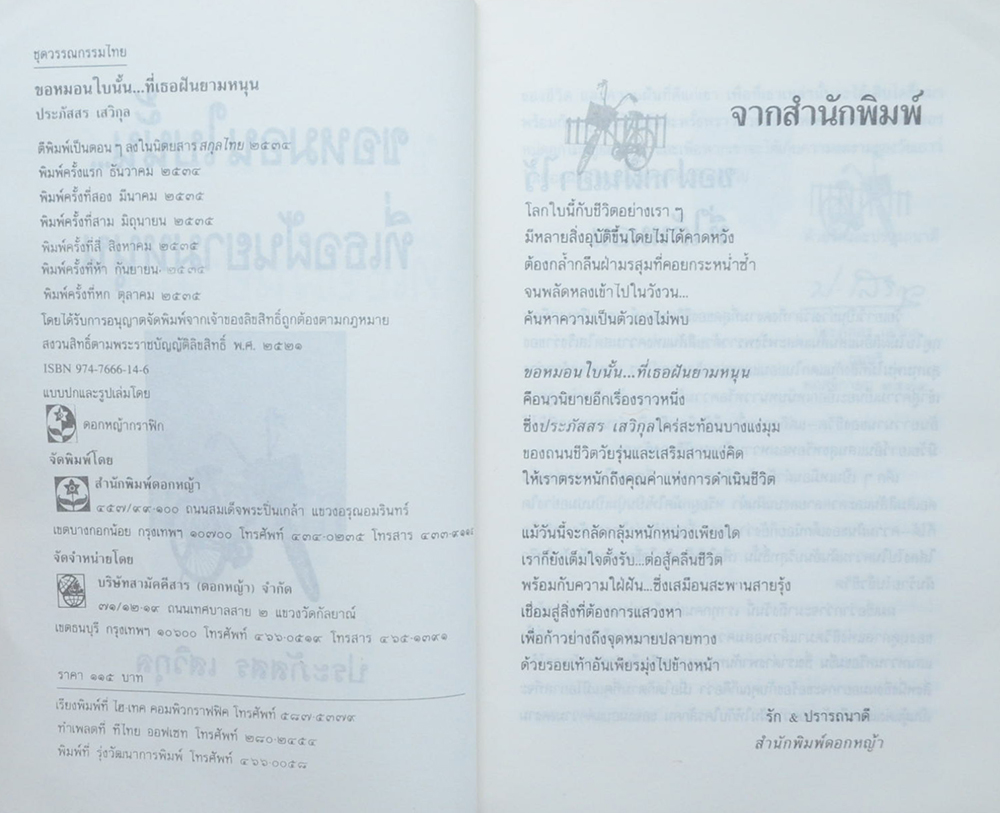 ชุดวรรณกรรมไทย
ขอหมอนใบนั้น...ที่เธอฝันยามหนุน
ประภัสสร เสวิกุล
ตีพิมพ์เป็นตอน ๆ ลงในนิตยสารสกุลไทย ๒๕๓๔
พิมพ์ครั้งแรก ธันวาคม ๒๕๓๔
พิมพ์ครั้งที่สอง มีนาคม ๒๕๓๕
พิมพ์ครั้งที่สาม มิถุนายน ๒๕๓๕
พิมพ์ครั้งที่สี่ สิงหาคม ๒๕๓๕
พิมพ์ครั้งที่ห้า กันยายน ๒๕๓๕
พิมพ์ครั้งที่หก ตุลาคม ๒๕๓๕
โดยได้รับการอนุญาตจัดพิมพ์จากเจ้าของลิขสิทธิ์ถูกต้องตามกฎหมาย
สงวนสิทธิ์ตามพระราชบัญญัติลิขสิทธิ์ พ.ศ. ๒๕๒๑
ISBN 974-7666-14-6
แบบปกและรูปเล่มโดย
ดอกหญ้ากราฟิก
จัดพิมพ์โดย
สำนักพิมพ์ดอกหญ้า
๔๕๗/๙๙-๑๐๐ ถนนสมเด็จพระปิ่นเกล้า แขวงอรุณอมรินทร์
เขตบางกอกน้อย กรุงเทพฯ ๑๐๗๐๐ โทรศัพท์ ๔๓๔-๐๒๓๕ โทรสาร
จัดจำหน่ายโดย
บริษัทสามัคคีสาร (ดอกหญ้า) จำกัด
๗๑/๑๒-๑๙ ถนนเทศบาลสาย ๒ แขวงวัดกัลยาณ์
เขตธนบุรี กรุงเทพฯ ๑๐๖๐๐ โทรศัพท์ ๔๖๖-๐๕๑๙ โทรสาร ๔๖๕-๑๓๙๑
ราคา ๑๑๕ บาท
เรียงพิมพ์ที่ ไฮ-เทค คอมพิวกราฟฟิค โทรศัพท์ ๕๘๗-๕๓๗๙
ทำเพลตที่ ทีไทย ออฟเซท โทรศัพท์ ๒๘๐-๒๔๕๔
พิมพ์ที่ รุ่งวัฒนาการพิมพ์ โทรศัพท์ ๔๖๖-๐๐๕๘
จากสำนักพิมพ์
โลกใบนี้กับชีวิตอย่างเรา ๆ
มีหลายสิ่งอุบัติขึ้นโดยไม่ได้คาดหวัง
ต้องกล้ำกลืนฝ่ามรสุมที่คอยกระหน่ำซ้ำ
จนพลัดหลงเข้าไปในวังวน...
ค้นหาความเป็นตัวเองไม่พบ
ขอหมอนใบนั้น...ที่เธอฝันยามหนุน
คือนวนิยายอีกเรื่องราวหนึ่ง
ซึ่งประภัสสร เสวิกุลใคร่สะท้อนบางแง่มุม
ของถนนชีวิตวัยรุ่นและเสริมสานแง่คิด
ให้เราตระหนักถึงคุณค่าแห่งการดำเนินชีวิต
แม้วันนี้จะกลัดกลุ้มหนักหน่วงเพียงใด
เราก็ยังเต็มใจตั้งรับ...ต่อสู้คลื่นชีวิต
พร้อมกับความใฝ่ฝัน...ซึ่งเสมือนสะพานสายรุ้ง
เชื่อมสู่สิ่งที่ต้องการแสวงหา
เพื่อก้าวย่างถึงจุดหมายปลายทาง
ด้วยรอยเท้าอันเพียรมุ่งไปข้างหน้า
รัก & ปรารถนาดี
สำนักพิมพ์ดอกหญ้า